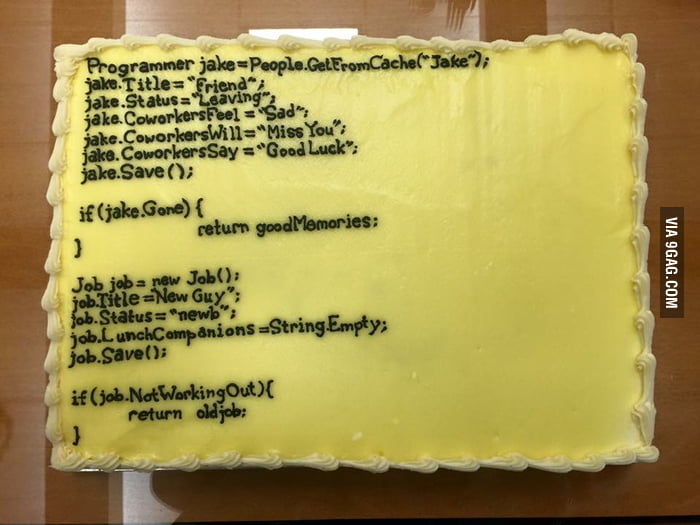 Programmer jake=People.GetFromCache("Jake");
jake.Title="Friend";
jake.Status="Leaving";
jake.CoworkersFeel="Sad";
jake.CoworkersWill="Miss You";
jake.CoworkersSay="Good Luck";
jake.Save();
if(jake.Gone) {
return goodMemories;
}
Job job= new Job();
job.Title=New Guy";
job.Status="newb";
job.LunchCompanions=String.Empty;
job.Save();
if(job.NotWorkingOut){
return oldjob;
}
VIA 9GAG.COM